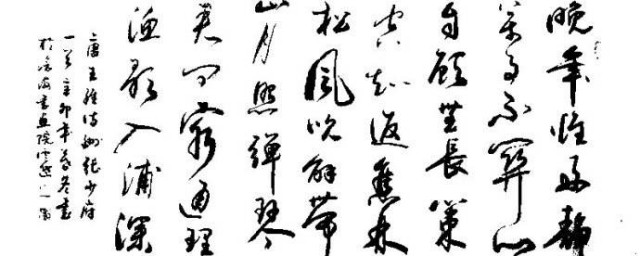 晚年惟好靜
萬事不關心
自顧無長策
空知返舊林
松風吹解帶
山月照彈琴
君問窮通理
漁歌入浦深
唐王維詩酬張少府
一首辛卯年春書
於海書画院